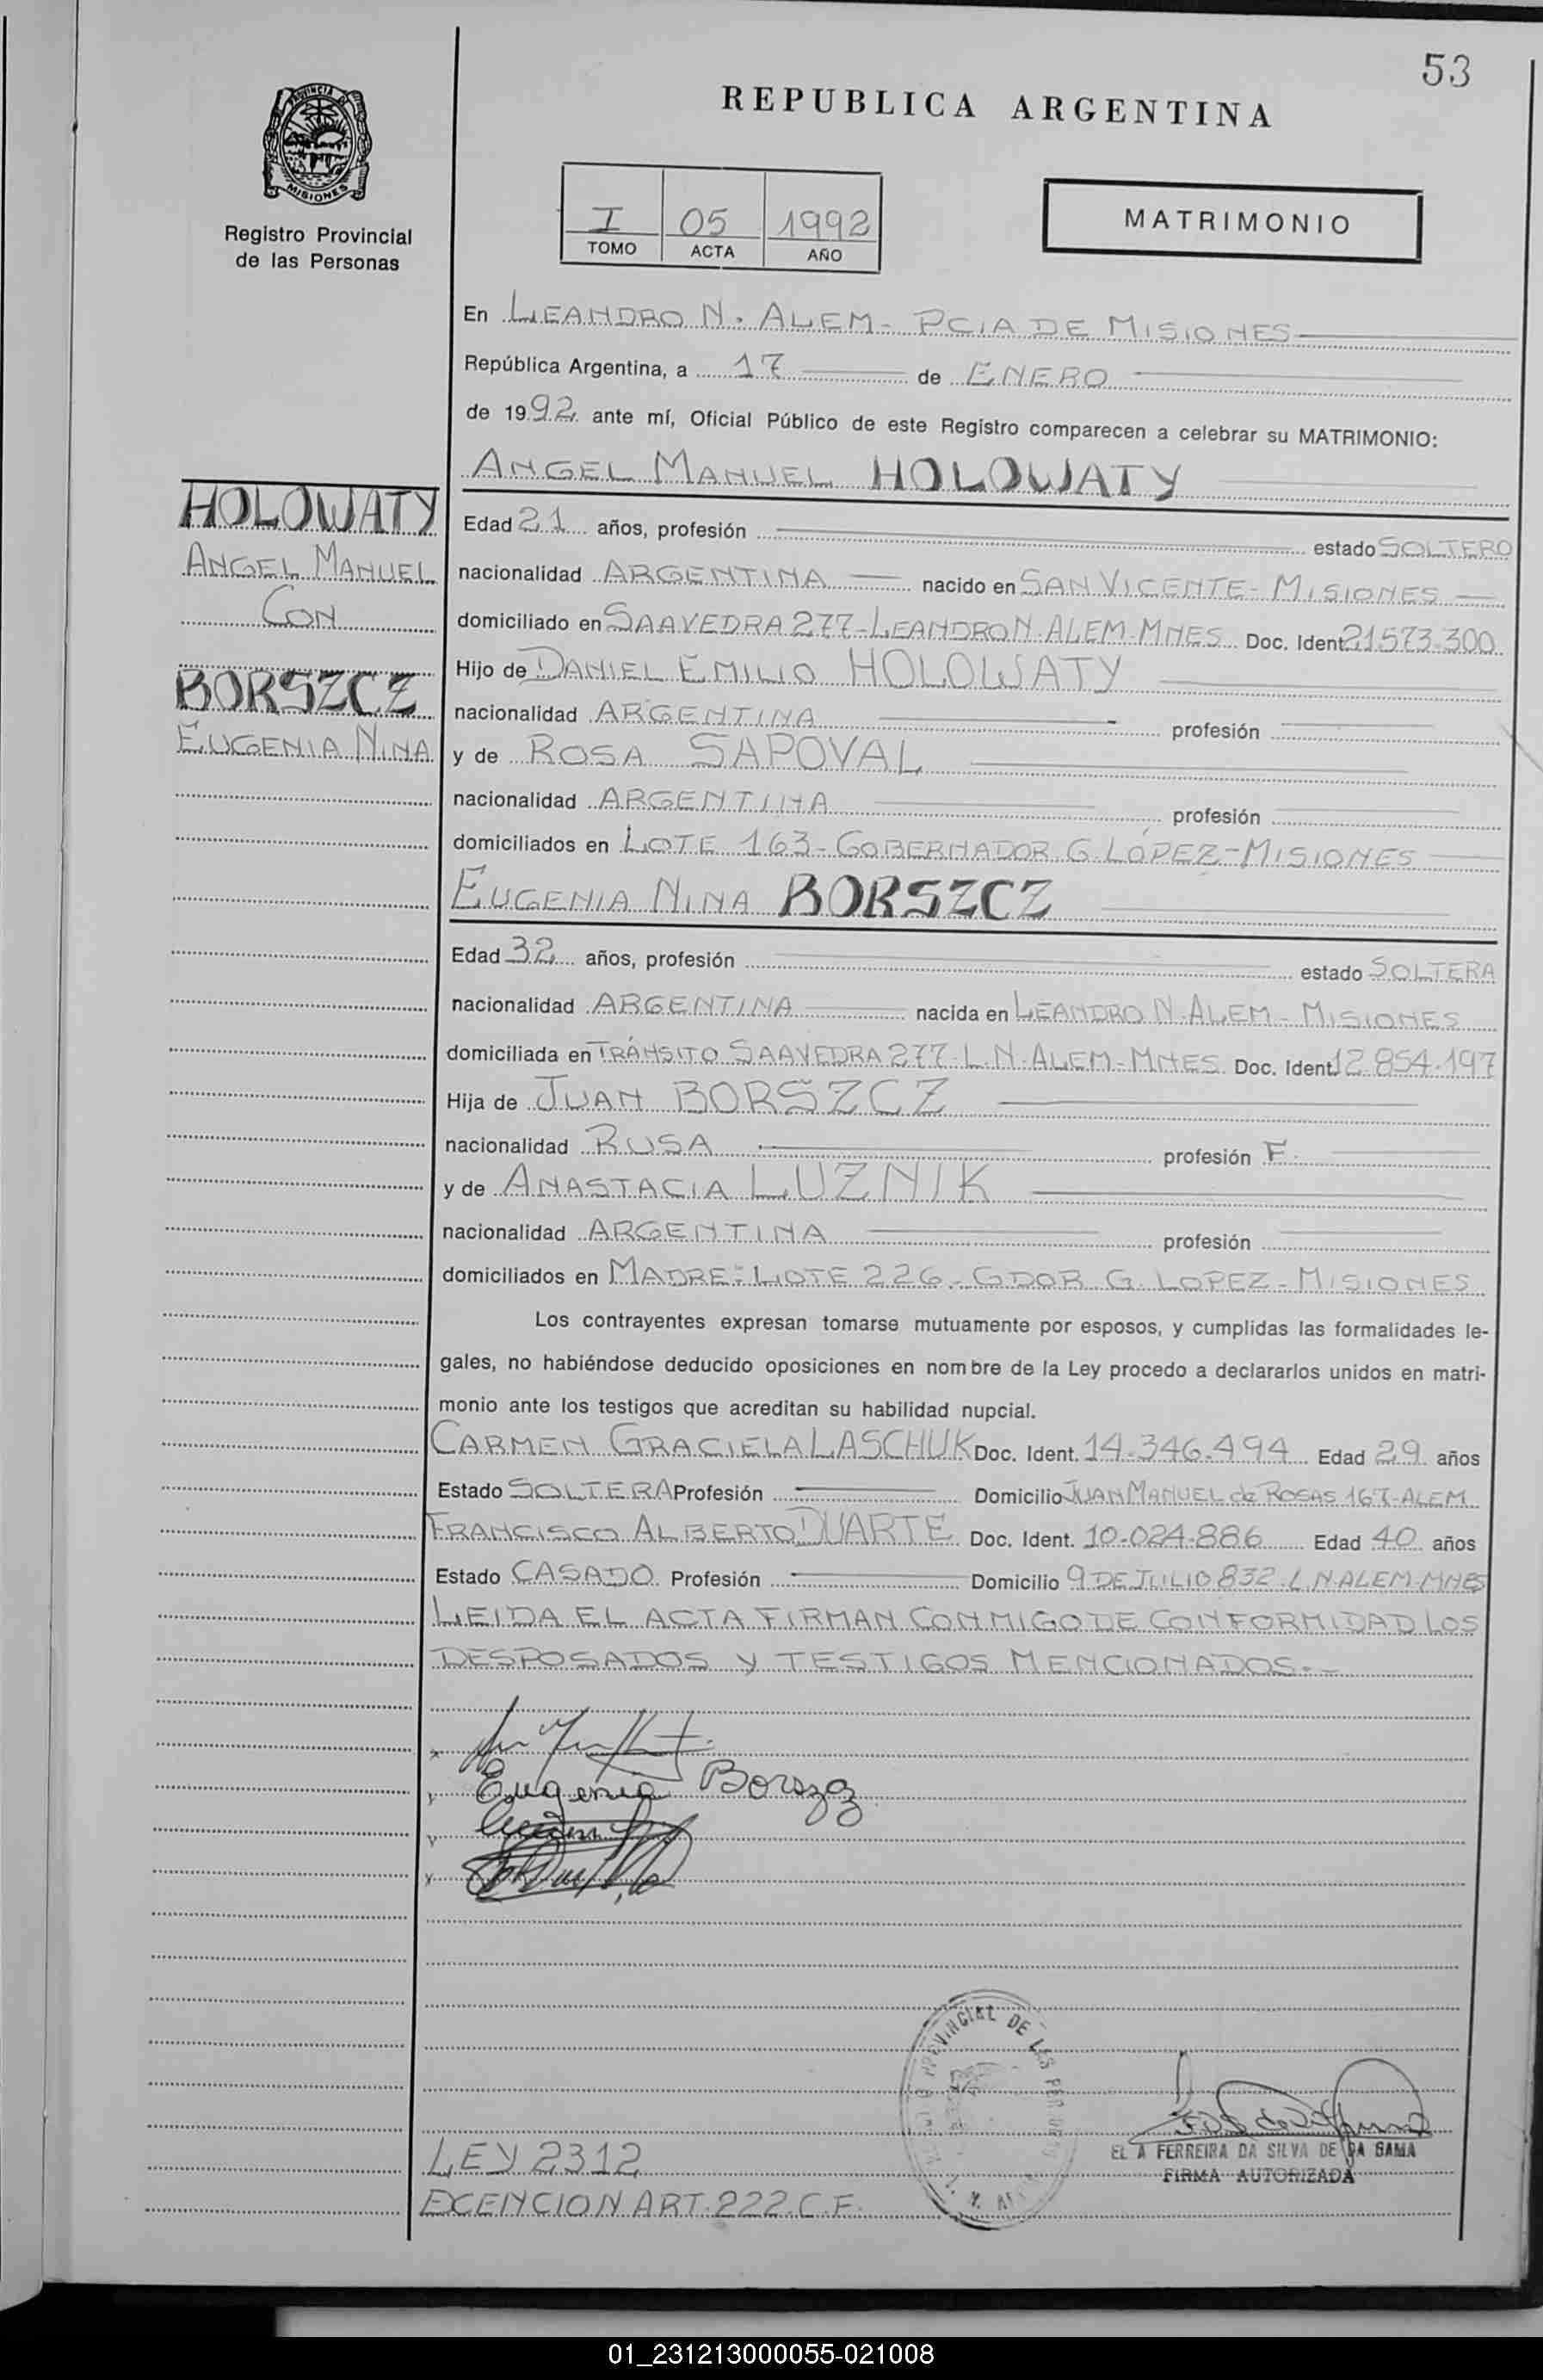 53
REPUBLICA ARGENTINA
PROVINCIA DE
MISIONES
Registro Provincial
de las Personas
I 05 1992
TOMO ACTA AÑO
MATRIMONIO
En LEANDRO N. ALEM - PCIA DE MISIONES
República Argentina, a 17 de ENERO
de 1992 ante mí, Oficial Público de este Registro comparecen a celebrar su MATRIMONIO:
ANGEL MANUEL HOLOWATY
HOLOWATY
ANGEL MANUEL
CON
BORSZCZ
EUGENIA NINA
Edad 21 años, profesión estado SOLTERO
nacionalidad ARGENTINA nacido en SAN VICENTE - MISIONES
domiciliado en SAAVEDRA 277-LEANDRO N. ALEM-MNES Doc. Ident 21.573.300
Hijo de DANIEL EMILIO HOLOWATY
nacionalidad ARGENTINA profesión
y de ROSA SAPOVAL
nacionalidad ARGENTINA profesión
domiciliados en LOTE 163-GOBERNADOR G. LÓPEZ-MISIONES
EUGENIA NINA BORSZCZ
Edad 32 años, profesión estado SOLTERA
nacionalidad ARGENTINA nacida en LEANDRO N. ALEM - MISIONES
domiciliada en TRÁNSITO SAAVEDRA 277-L.N. ALEM-MNES Doc. Ident. 12.854.197
Hija de JUAN BORSZCZ
nacionalidad RUSA profesión F.
y de ANASTACIA LUZNIK
nacionalidad ARGENTINA profesión
domiciliados en MADRE: LOTE 226-GDOR G. LOPEZ-MISIONES
Los contrayentes expresan tomarse mutuamente por esposos, y cumplidas las formalidades le-
gales, no habiéndose deducido oposiciones en nombre de la Ley procedo a declararlos unidos en matri-
monio ante los testigos que acreditan su habilidad nupcial.
CARMEN GRACIELA LASCHUK Doc. Ident. 14.346.494 Edad 29 años
Estado SOLTERA Profesión Domicilio JUAN MANUEL de ROSAS 167-ALEM
FRANCISCO ALBERTO DUARTE Doc. Ident. 10.024.886 Edad 40 años
Estado CASADO Profesión Domicilio 9 DE JULIO 832-L N ALEM-MNES
LEIDA EL ACTA FIRMAN CONMIGO DE CONFORMIDAD LOS
DESPOSADOS Y TESTIGOS MENCIONADOS.-
Eugenia Borszcz
PROVINCIAL DE LAS
FERREIRA DA SILVA DE DA GAMA
FIRMA AUTORIZADA
LEY 2312
EXENCION ART. 222.C.F.
01_231213000055-021008